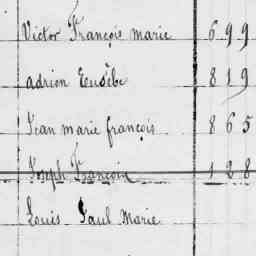 Victor François marie 699
adrien Eusèbe 819
Jean marie françois 865
Joseph François 128
Louis Paul Marie